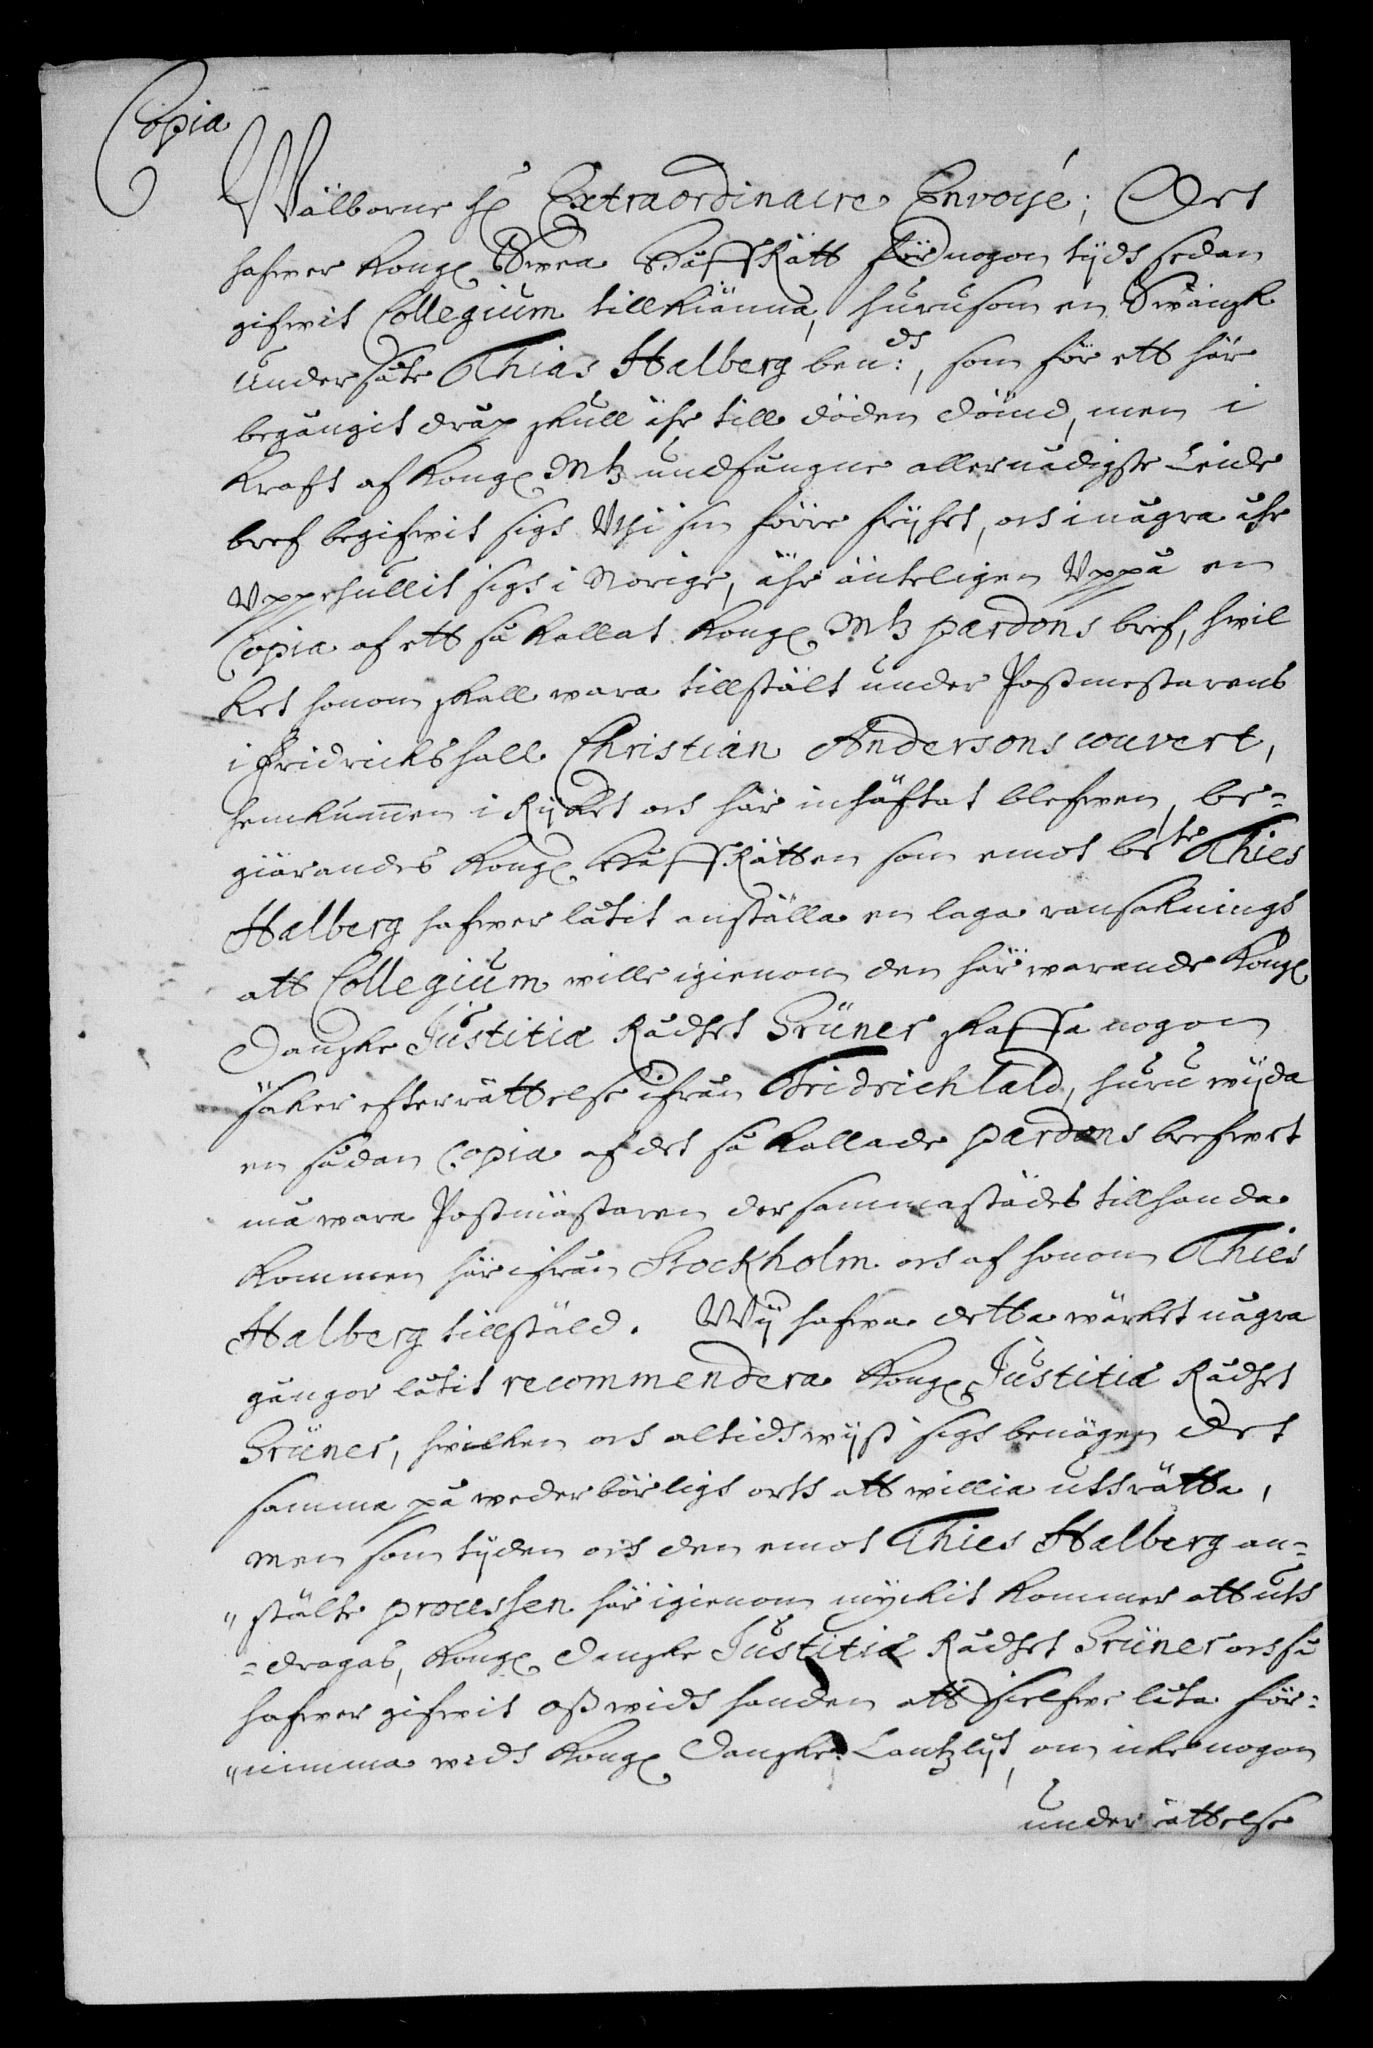 Copia
Wälborne H: Extraordinaire Envoijé; Det
hafwer Kongl Swea HåffRätt för nogon tijds sedan
gifwit Collegium tillkiänna, huruson en Swänsk
undersåte Thias Halberg ben:de, som för ett här
begångit dråp skull ähr till döden dömd, men i
Krafft af Kongl Mtz undfångne allernådigste Leide
bref begifwit sigh Uhi sin förre frijhet, och i några åhr
Uppehullit sigh i Norige, ähr änteligen Uppå en
Copia af ett så kallat Kongl Mtz pardons bref, hwil
ket honom skall wara tillstält under Postmestarens
i Fridrickshall Christian Andersons couvert,
hemkummen i Rijket och här inhäftat blefwen, be-
giärandes Kongl HåffRätten som emot be:te Thies
Halberg hafwer låtit anställa en laga ransakningh
att Collegium wille igienom den här warande Kongl
Danske Justitiæ Rådhet Grüner skaffa nogon
säker efterrättelse ifrån Fridrichlald, huru wijda
en sådan Copia af det så kallade pardons brefwet
må wara Postmästaren dersammastädes tillhanda
kommen här ifrån Stockholm och af honom Thies
Halberg tillstäld. Wij hafwa detta wärket några
gångor låtit recommendera Kongl Justitiæ Rådhet
Grüner, hwilken och altidh wijst sigh benägen det
samma på wederbörligh orth att willia uthrätta,
men som tijden och den emot Thies Halberg an-
stälte processen här igienom myckit kommer att uth
dragas, Kongl Danske Justitiæ Rådhet Grüner och så
hafwer gifwit oss widh handen att sielfwe låta för-
nimma widh Kongl Danske Cantzlijt, om icke nogon
underrättelse